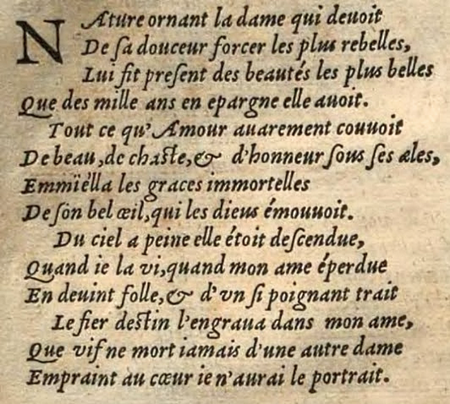 NAture ornant la dame qui deuoit
De sa douceur forcer les plus rebelles,
Lui fit present des beautés les plus belles
Que des mille ans en epargne elle auoit.
Tout ce qu'Amour auarement couuoit
De beau, de chaste, & d'honneur sous ses æles,
Emmïélla les graces immortelles
De son bel œil, qui les dieus émouuoit.
Du ciel a peine elle étoit descendue,
Quand ie la vi, quand mon ame éperdue
En deuint folle, & d'vn si poignant trait
Le fier destin l'engraua dans mon ame,
Que vif ne mort iamais d'une autre dame
Empraint au cœur ie n'aurai le portrait.